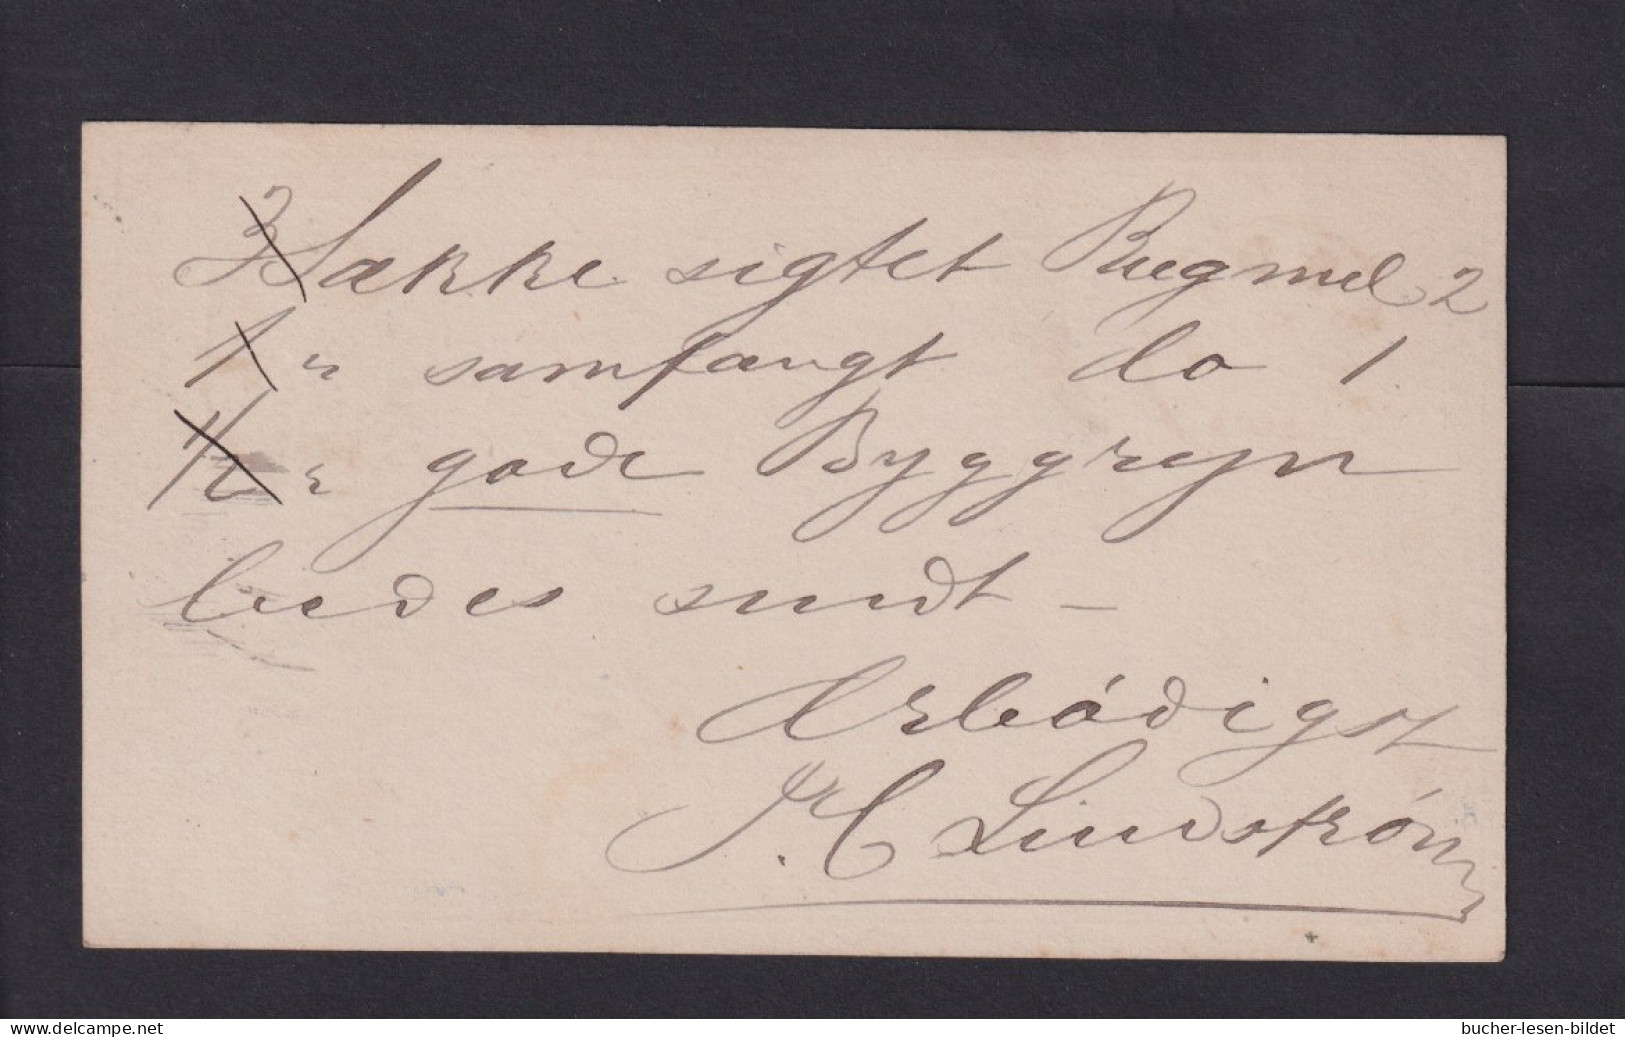 3 Sække sigtet Rugmel 2
1 " samfængt do 1
1/2 " gode Byggryn
bedes sendt –
Ærbødigst
J. C. Lindstrøm
www.delcampe.net
bucher-lesen-bildet